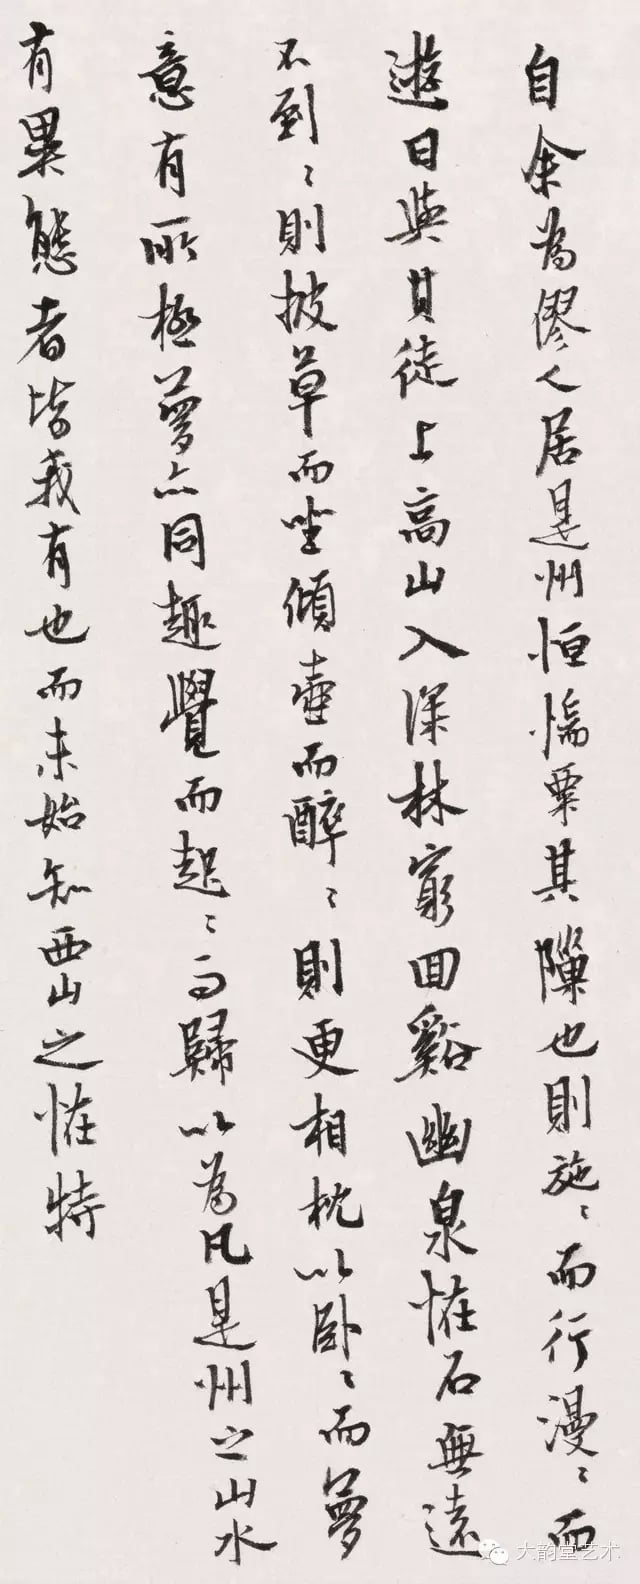 自余為僇人居是州恒惴栗其隟也則施〻而行漫〻而
遊日與其徒上高山入深林窮回谿幽泉怪石無遠
不到〻則披草而坐傾壺而醉〻則更相枕以卧〻而夢
意有所極夢亦同趣覺而起〻而歸以為凡是州之山水
有異態者皆我有也而未始知西山之怪特
大韵堂艺术